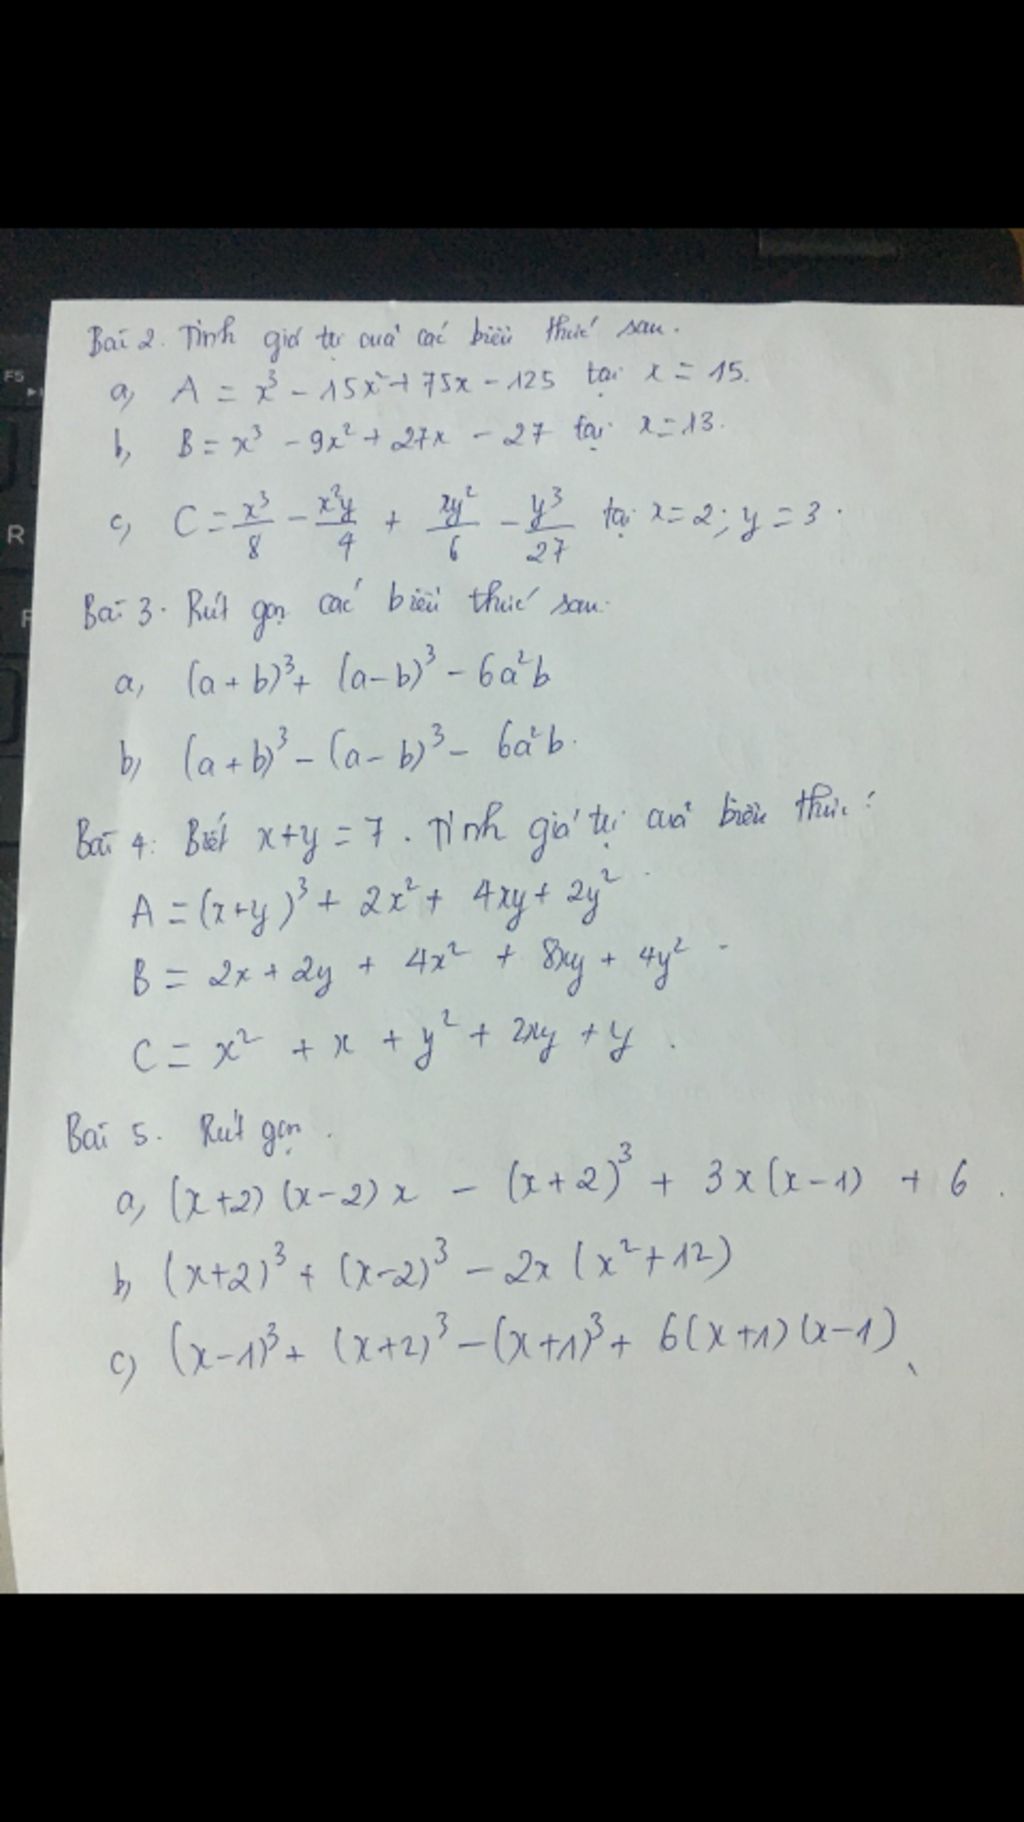 F5
R
Bài 2. Tính giá trị của các biểu thức sau.
a, A = x³ - 15x² + 75x - 125 tại x = 15.
b, B = x³ - 9x² + 27x - 27 tại x = 13.
c, C = x³/8 - x²y/4 + xy²/6 - y³/27 tại x = 2; y = 3.
Bài 3. Rút gọn các biểu thức sau.
a, (a + b)³ + (a - b)³ - 6a²b
b, (a + b)³ - (a - b)³ - 6a²b.
Bài 4: Biết x + y = 7. Tính giá trị của biểu thức:
A = (x + y)³ + 2x² + 4xy + 2y²
B = 2x + 2y + 4x² + 8xy + 4y²
C = x² + x + y² + 2xy + y.
Bài 5. Rút gọn.
a, (x+2)(x-2)x - (x+2)³ + 3x(x-1) + 6.
b, (x+2)³ + (x-2)³ - 2x(x²+12)
c, (x-1)³ + (x+2)³ - (x+1)³ + 6(x+1)(x-1)